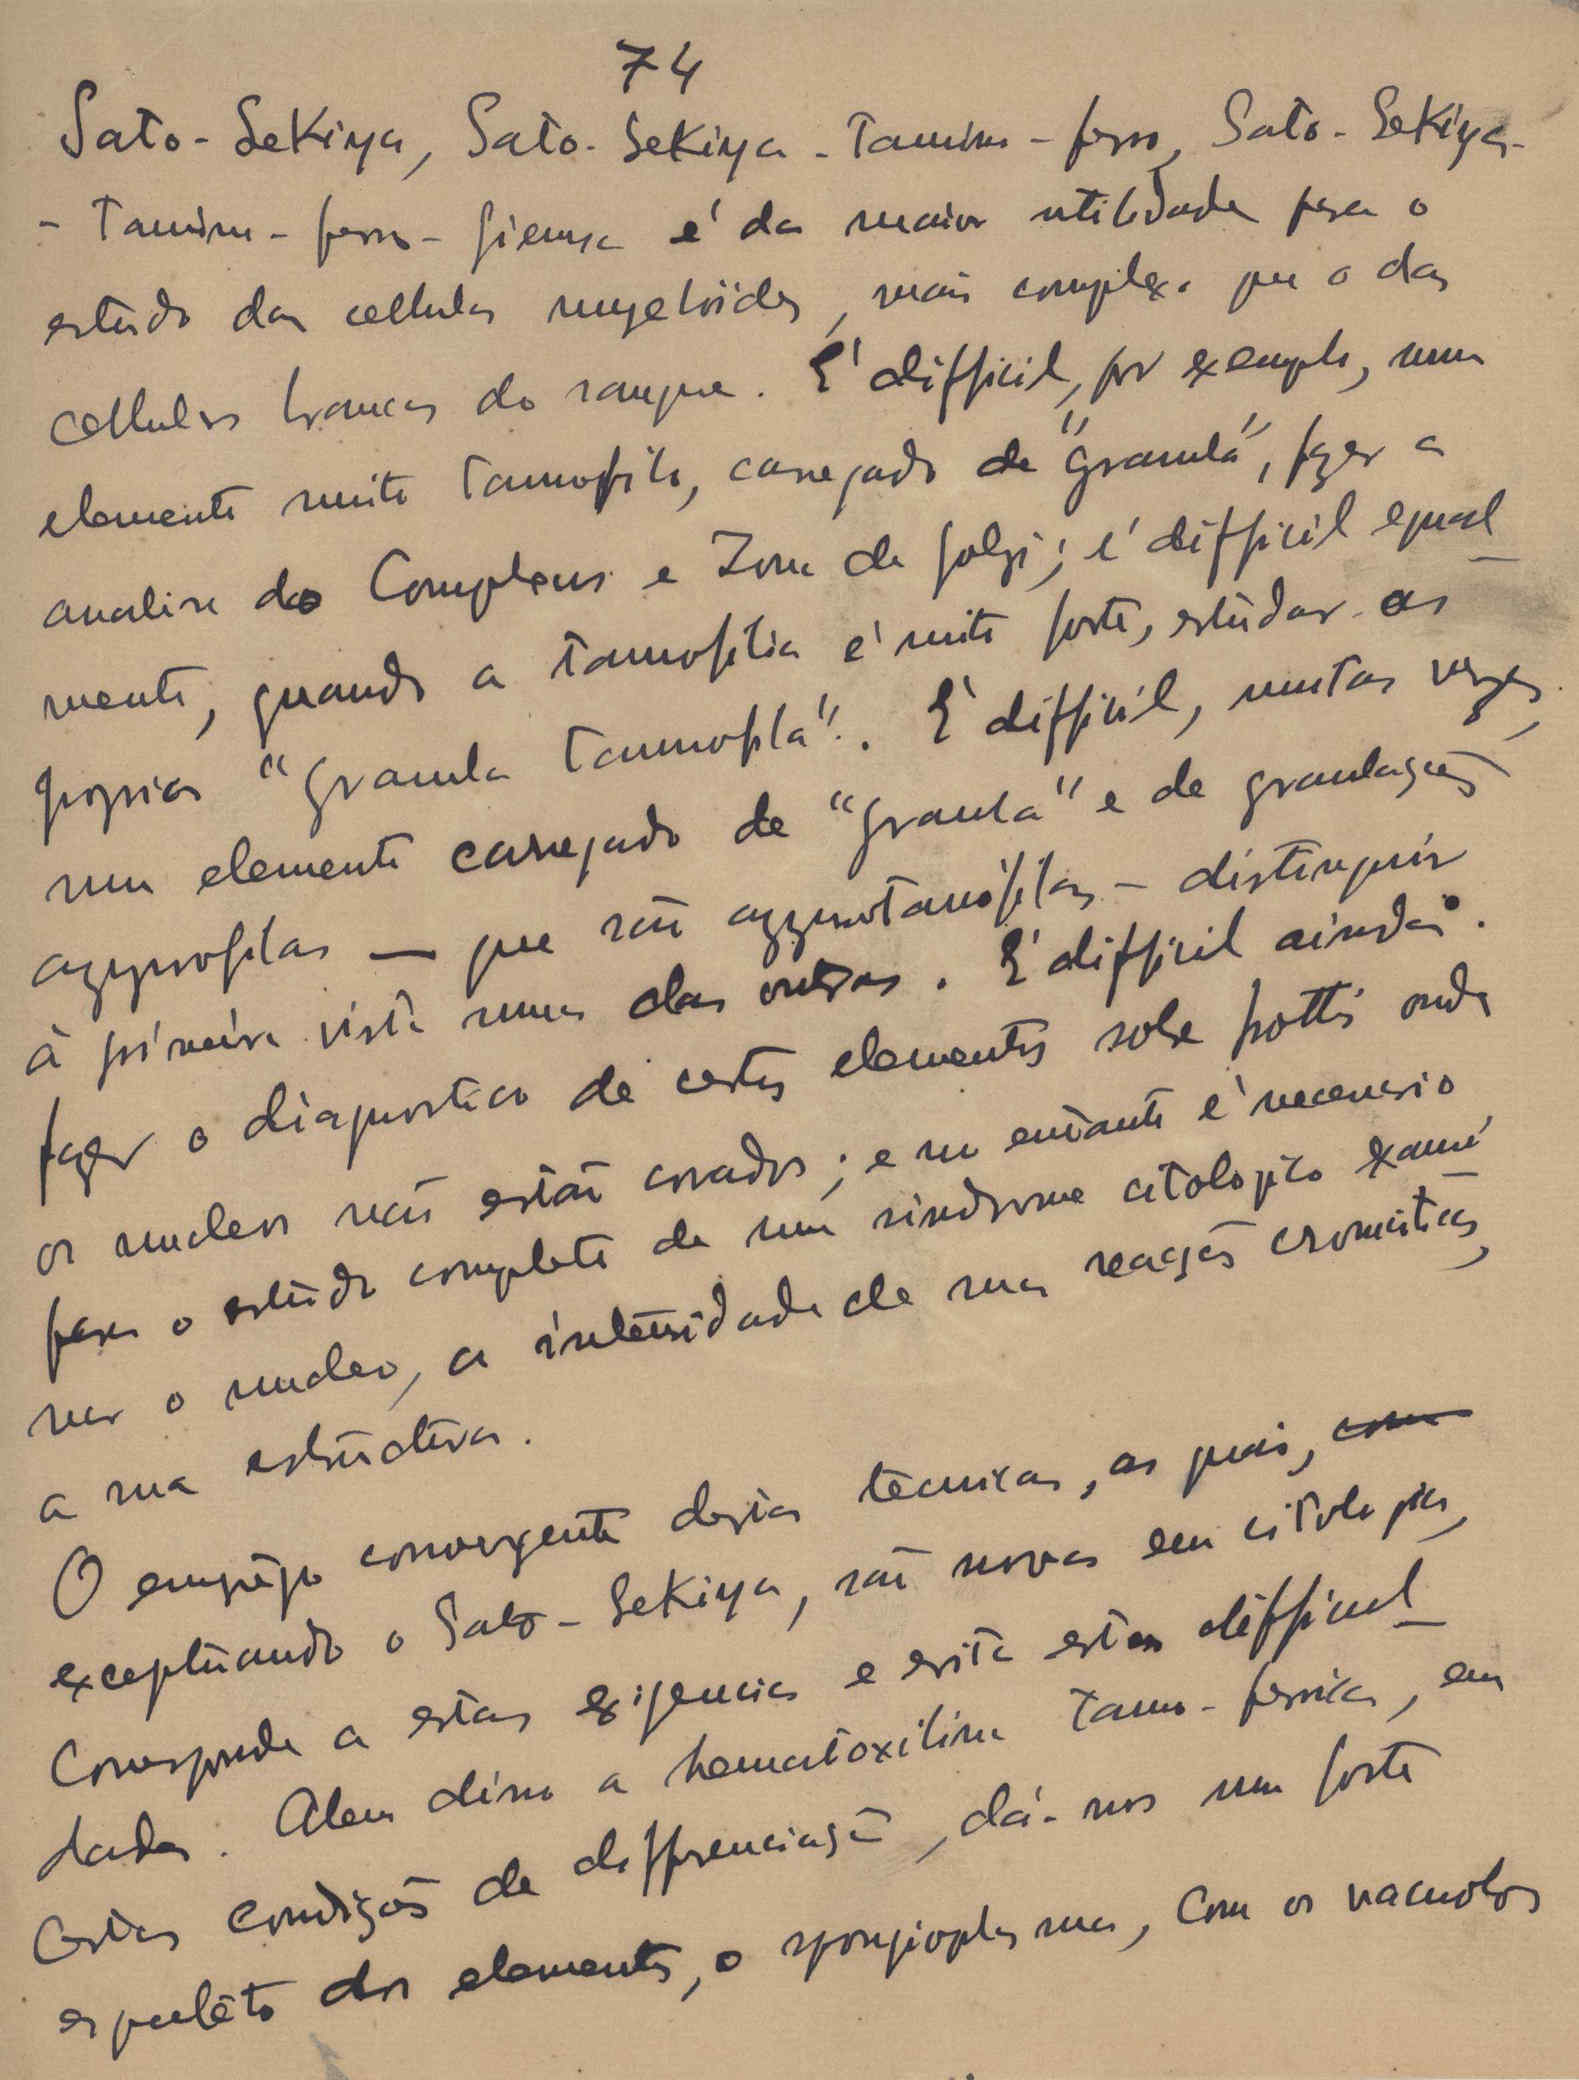 74
Sato-Sekiya, Sato-Sekiya-Tanino-ferro, Sato-Sekiya-
-Tanino-ferro-Giemsa é da maior utilidade para o
estudo das cellulas myeloïdes, mais complexo que o das
cellulas brancas do sangue. É difficil, por exemplo, num
elemento muito tannofilo, carregado de "granula", fazer a
analise do Complexus e Zona de Golgi; é difficil egual-
mente, quando a tannofilia é muito forte, estudar as
proprias "granula tannofila". É difficil, muitas vezes,
num elemento carregado de "granula" e de granulações
azurofilas — que são azurotanófilas — distinguir
à primeira vista umas das outras. É difficil ainda
fazer o diagnostico de certos elementos sobre frottis onde
os nucleos não estão corados; e no entanto é necessario
para o estudo completo de um sindrome citologico exami-
nar o nucleo, a intensidade de suas reacções cromaticas,
a sua estructura.
O emprêgo convergente destas tecnicas, as quais, com
exceptuando o Sato-Sekiya, são novas em citologia,
Corresponde a estas exigencias e evita estas difficul-
dades. Alem disso a hematoxilina tano-ferrica, em
Certas condições de differenciação, dá-nos um forte
esqueleto dos elementos, o spongioplasma, Com os vacuolos